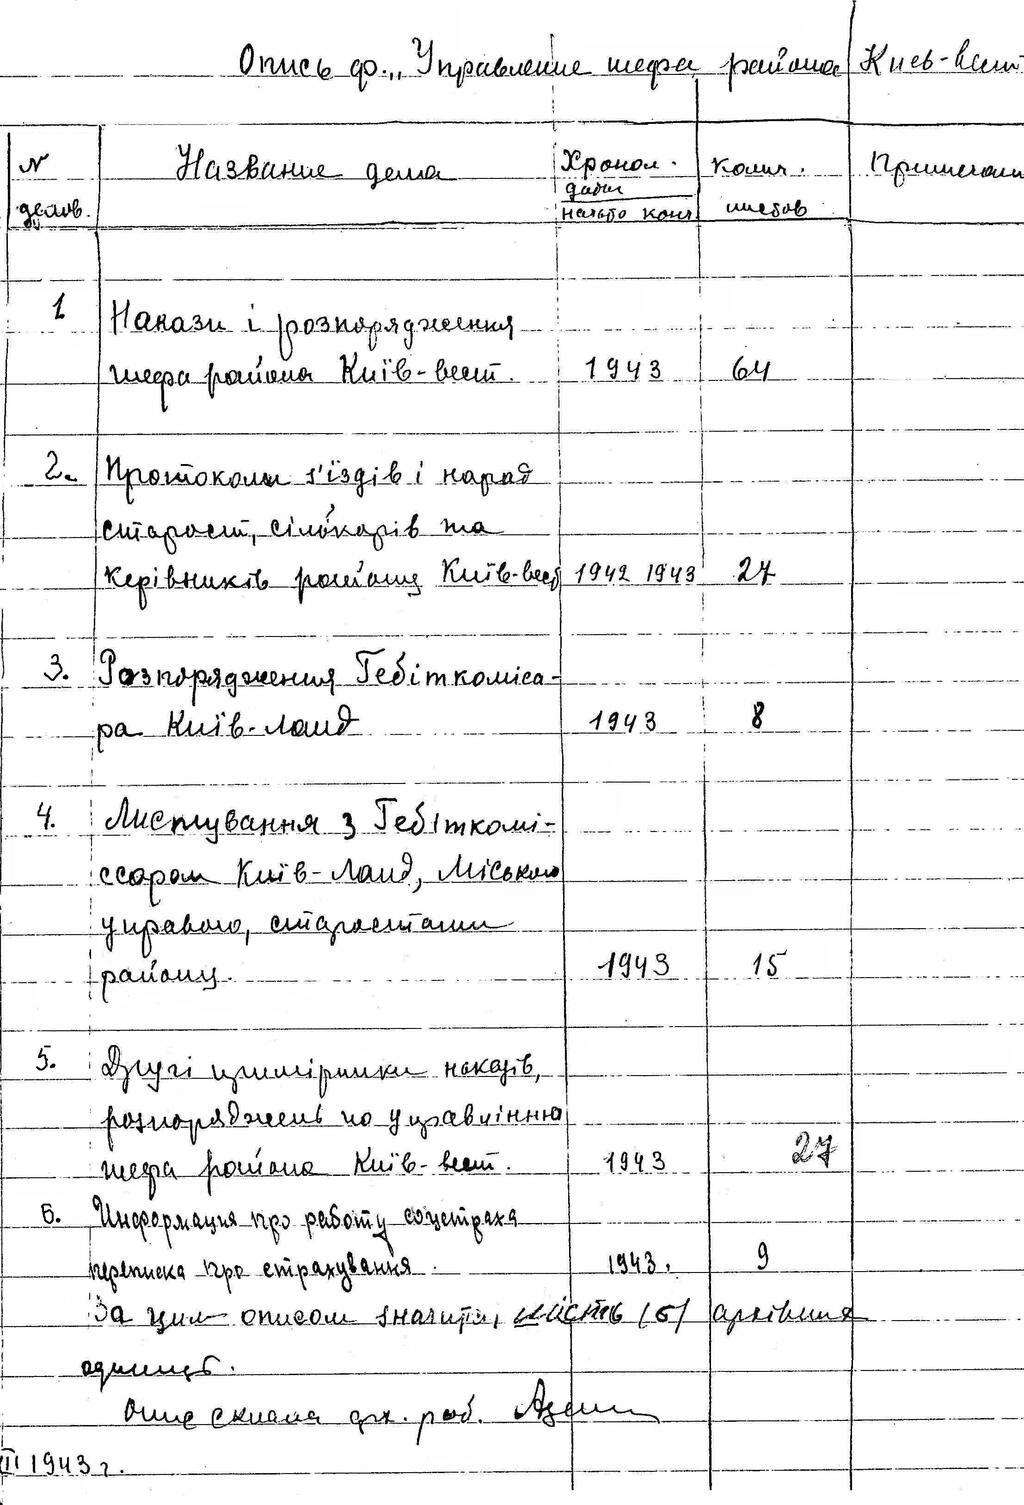 Опись ф. „Управление шефа района Киев-вест
№ делов. Название дела Хронол. даты начало конч колич. листов Примечани
1 Накази і розпорядження
шефа района Київ-вест. 1943 64
2. Протоколи з'їздів і нарад
старост, сількорів та
керівників району Київ-вест 1942 1943 27
3. Розпорядження Гебіткоміса-
ра Київ-Ланд 1943 8
4. Листування з Гебіткомі-
ссаром Київ-Ланд, Міською
управою, старостами
району. 1943 15
5. Другі примірники наказів,
розпоряджень по управлінню
шефа района Київ-вест. 1943 27
6. Информация про работу соцстраха
переписка про страхування. 1943. 9
За цим описом значиться, шість (6) архівних
одиниць.
Опис склала арх. роб.
III 1943 г.